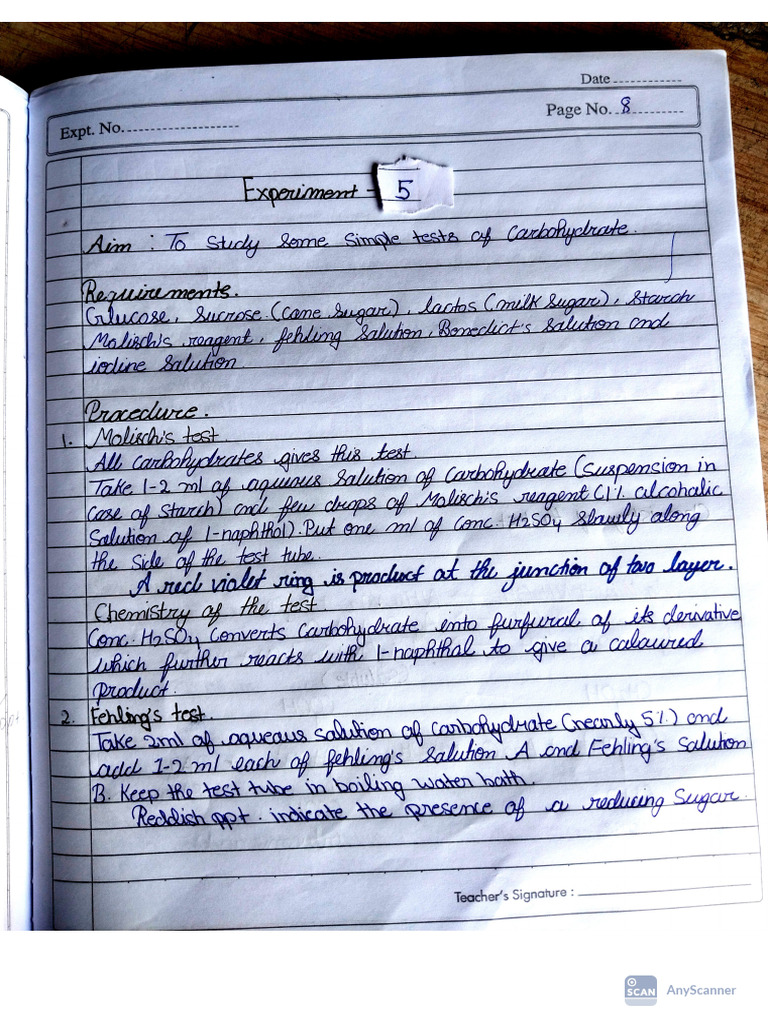 Date
Expt. No.
Page No. 8
Experiment - 5
Aim : To study some simple tests of Carbohydrate.
Requirements.
Glucose, sucrose (cane sugar), lactos (milk sugar), starch
Molisch's reagent, fehling solution, Benedict's solution and
iodine solution.
Procedure.
1. Molisch's test.
All carbohydrates gives this test.
Take 1-2 ml of aqueous solution of Carbohydrate (suspension in
case of starch) and few drops of Molisch's reagent (1% alcoholic
solution of 1-naphthol). Put one ml of conc. H2SO4 slowly along
the side of the test tube.
A red violet ring is product at the junction of two layer.
Chemistry of the test.
Conc. H2SO4 converts Carbohydrate into furfural of its derivative
which further reacts with 1-naphthol to give a coloured
product.
2. Fehling's test.
Take 2ml of aqueous solution of carbohydrate (nearly 5%) and
add 1-2 ml each of fehling's solution A and Fehling's solution
B. Keep the test tube in boiling water bath.
Reddish ppt. indicate the presence of a reducing sugar.
Teacher's Signature :
SCAN AnyScanner